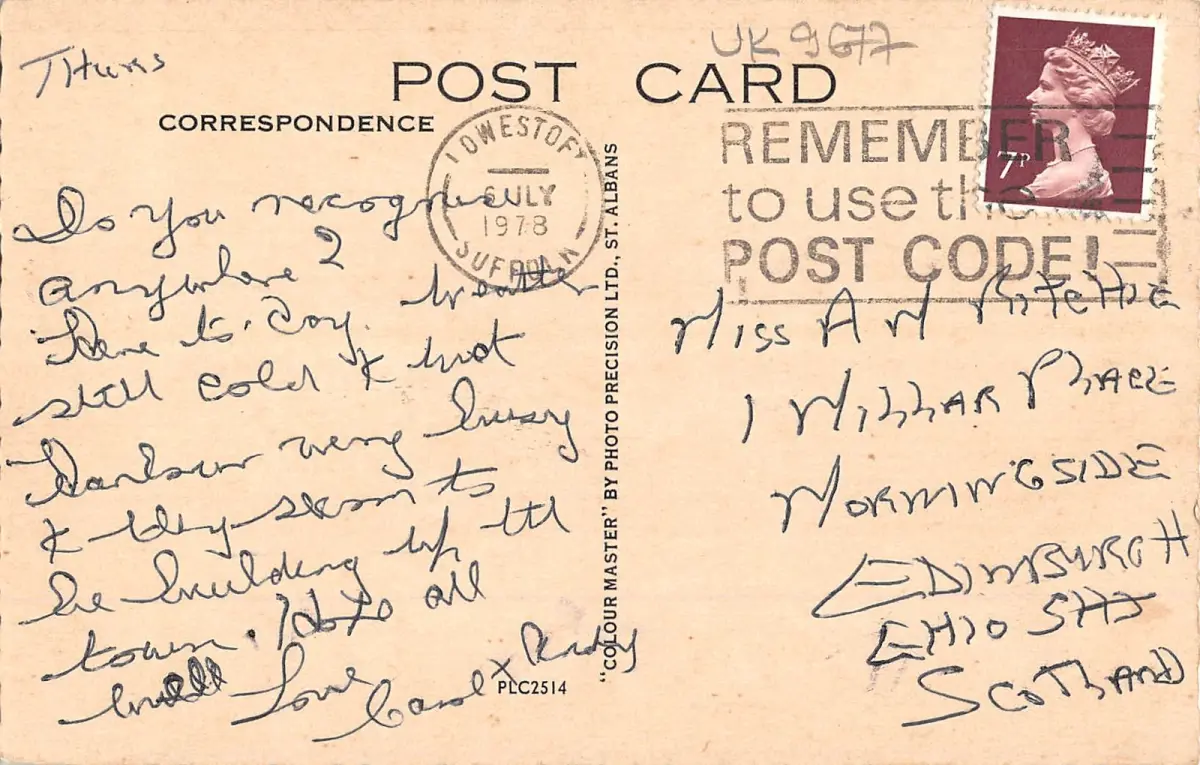 Thurs
UK 9677
POST CARD
CORRESPONDENCE
LOWESTOFT
6 JULY
1978
SUFFOLK
REMEMBER
to use the
POST CODE!
7P
Do you recognise
anywhere?
Here to-day. Weather
still cold & wet
Harbour very busy
& they seem to
be building up the
town. Hope all
well Love
Carol x
"COLOUR MASTER" BY PHOTO PRECISION LTD., ST. ALBANS
PLC2514
Miss A M Ritchie
1 Millar Place
Morningside
Edinburgh
EH10 5HJ
Scotland